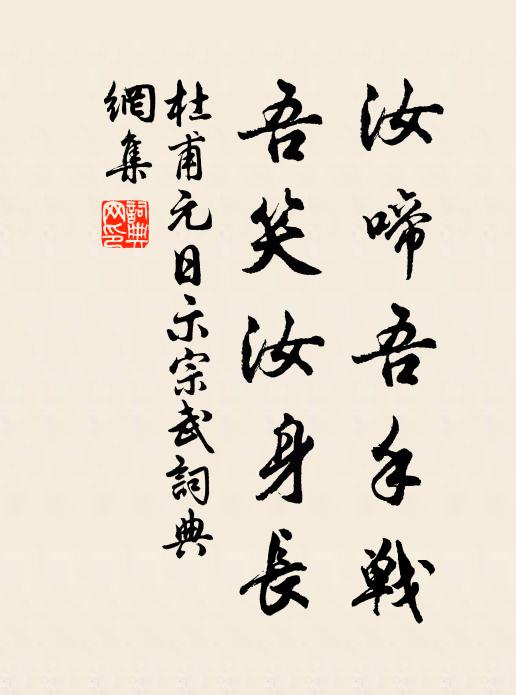 汝啼吾手戰
吾笑汝身長
杜甫元日示宗武詞典
網集
詞典
网印